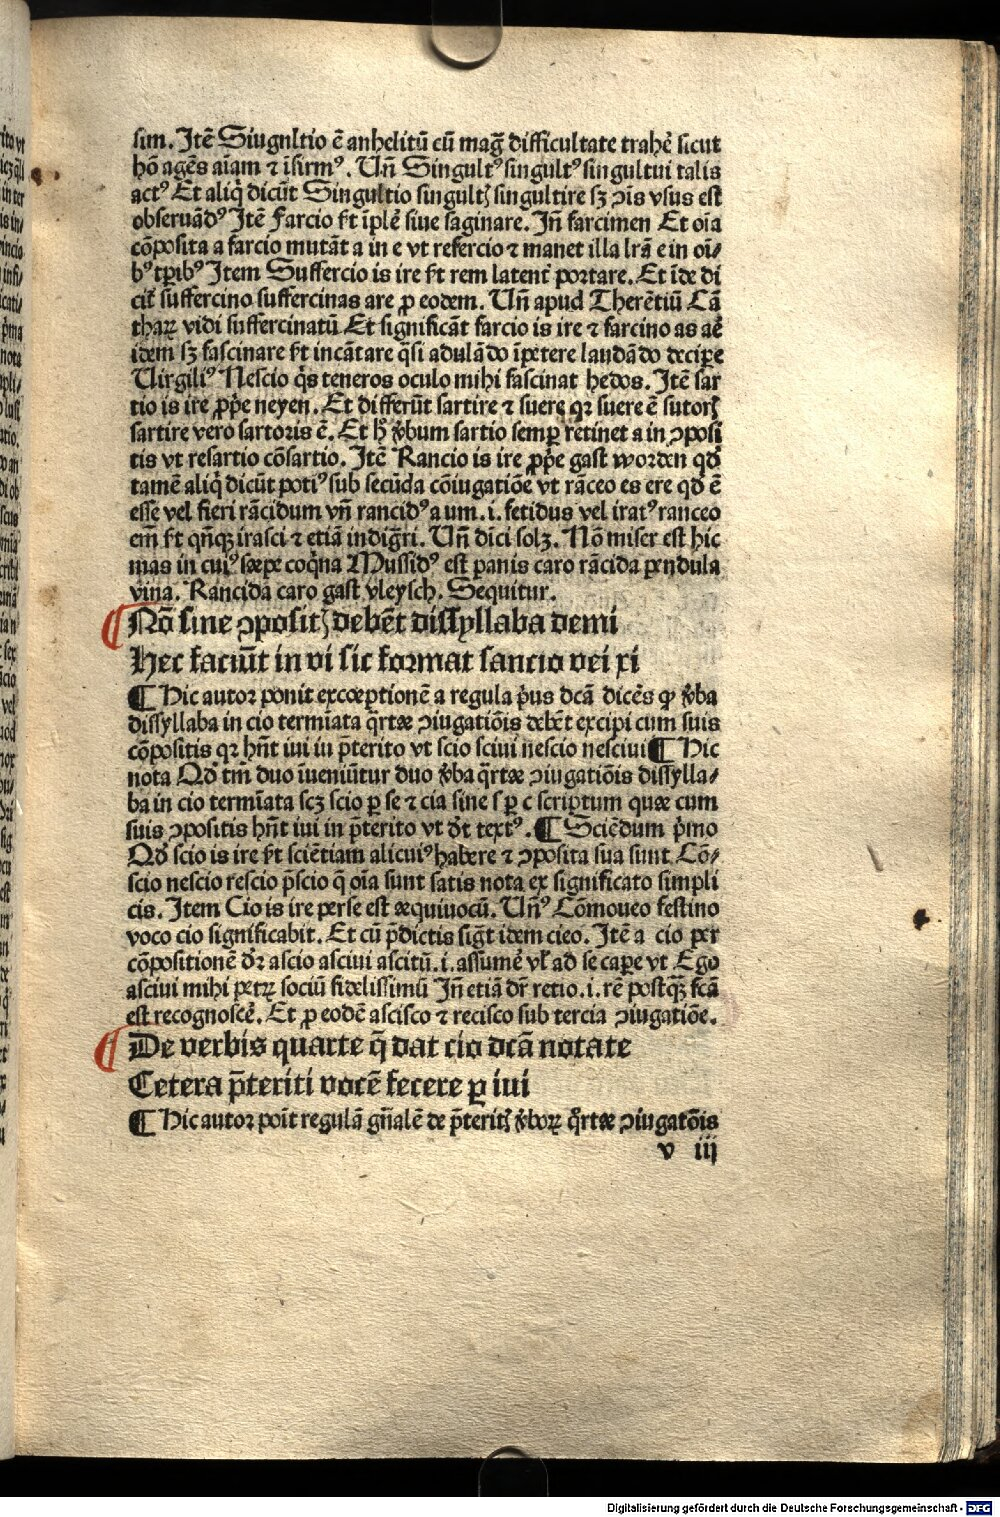 sim. Itē Siugnltio ē anhelitū cū maḡ difficultate trahē sicut
hō agēs aīam ⁊ īfirmꝰ. Uñ Singultꝰ singultꝰ singultui talis
actꝰ Et aliq̄ dicūt Singultio singultꝭ singultire sꝫ ꝯīs vsus est
obseruādꝰ Itē Farcio fit īplē siue saginare. Iñ farcimen Et oīa
cōposita a farcio mutāt a in e vt refercio ⁊ manet illa lrā e in oī⸗
bꝰ tꝑibꝰ Item Suffercio is ire fit rem latent̄ portare. Et īde di
cit̄ suffercino suffercinas are ꝓ eodem. Uñ apud Therētiū Cā
tharꝝ vidi suffercinatū Et significāt farcio is ire ⁊ farcino as aē
idem sꝫ fascinare fit incātare q̄si adulādo īpetere laudādo decipe
Uirgiliꝰ Nescio q̄s teneros oculo mihi fascinat hedos. Itē sar
tio is ire ꝓpe neyen. Et differūt sartire ⁊ suere qꝛ suere ē sutorꝭ
sartire vero sartoris ē. Et h̄ v̄bum sartio semꝑ retinet a in ꝯposi
tis vt resartio cōsartio. Itē Rancio is ire ꝓpe gast worden qd̄
tamē aliq̄ dicūt potiꝰ sub secūda cōiugatiōe vt rāceo es ere qd̄ ē
esse vel fieri rācidum vñ rancidꝰ a um. i. fetidus vel iratꝰ ranceo
em̄ fit qn̄qꝫ irasci ⁊ etiā indiḡri. Uñ dici solꝫ. Nō miser est hic
mas in cuiꝰ sæpe coq̄na Mussidꝰ est panis caro rācida pendula
vina. Rancida caro gast vleysch. Sequitur.
¶ Nō sine ꝯpositꝭ debēt dissyllaba demi
Hec faciūt in vi sic format sancio vei xi
¶ Hic autor ponit excœptionē a regula p̄us dcā dicēs ꝙ v̄ba
dissyllaba in cio termīata q̄rtæ ꝯiugatiōis debēt excipi cum suis
cōpositis qꝛ hn̄t iui in p̄terito vt scio sciui nescio nesciui ¶ Hic
nota Qd̄ tm̄ duo īueniūtur duo v̄ba q̄rtæ ꝯiugatiōis dissylla⸗
ba in cio termīata scꝫ scio ꝑ se ⁊ cia sine s ꝑ c scriptum quæ cum
suis ꝯpositis hn̄t iui in p̄terito vt dt̄ textꝰ. ¶ Sciēdum p̄mo
Qd̄ scio is ire fit sciētiam alicuiꝰ habere ⁊ ꝯposita sua sunt Cō⸗
scio nescio rescio p̄scio q̄ oīa sunt satis nota ex significato simpli
cis. Item Cio is ire per se est æquiuocū. Uñꝰ Cōmoueo festino
voco cio significabit. Et cū p̄dictis sigt̄ idem cieo. Itē a cio per
cōpositionē dꝛ ascio asciui ascitū. i. assumē vl̄ ad se cape vt Ego
asciui mihi petrꝝ sociū fidelissimū Iñ etiā dr̄ retio. i. rē postqꝫ fcā
est recognoscē. Et ꝓ eodē ascisco ⁊ recisco sub tercia ꝯiugatiōe.
¶ De verbis quarte q̄ dat cio dcā notate
Cetera p̄teriti vocē fecere ꝑ iui
¶ Hic autor poīt regulā gñalē de p̄teritꝭ v̄boꝝ q̄rtæ ꝯiugatōis
v iii
Digitalisierung gefördert durch die Deutsche Forschungsgemeinschaft - DFG